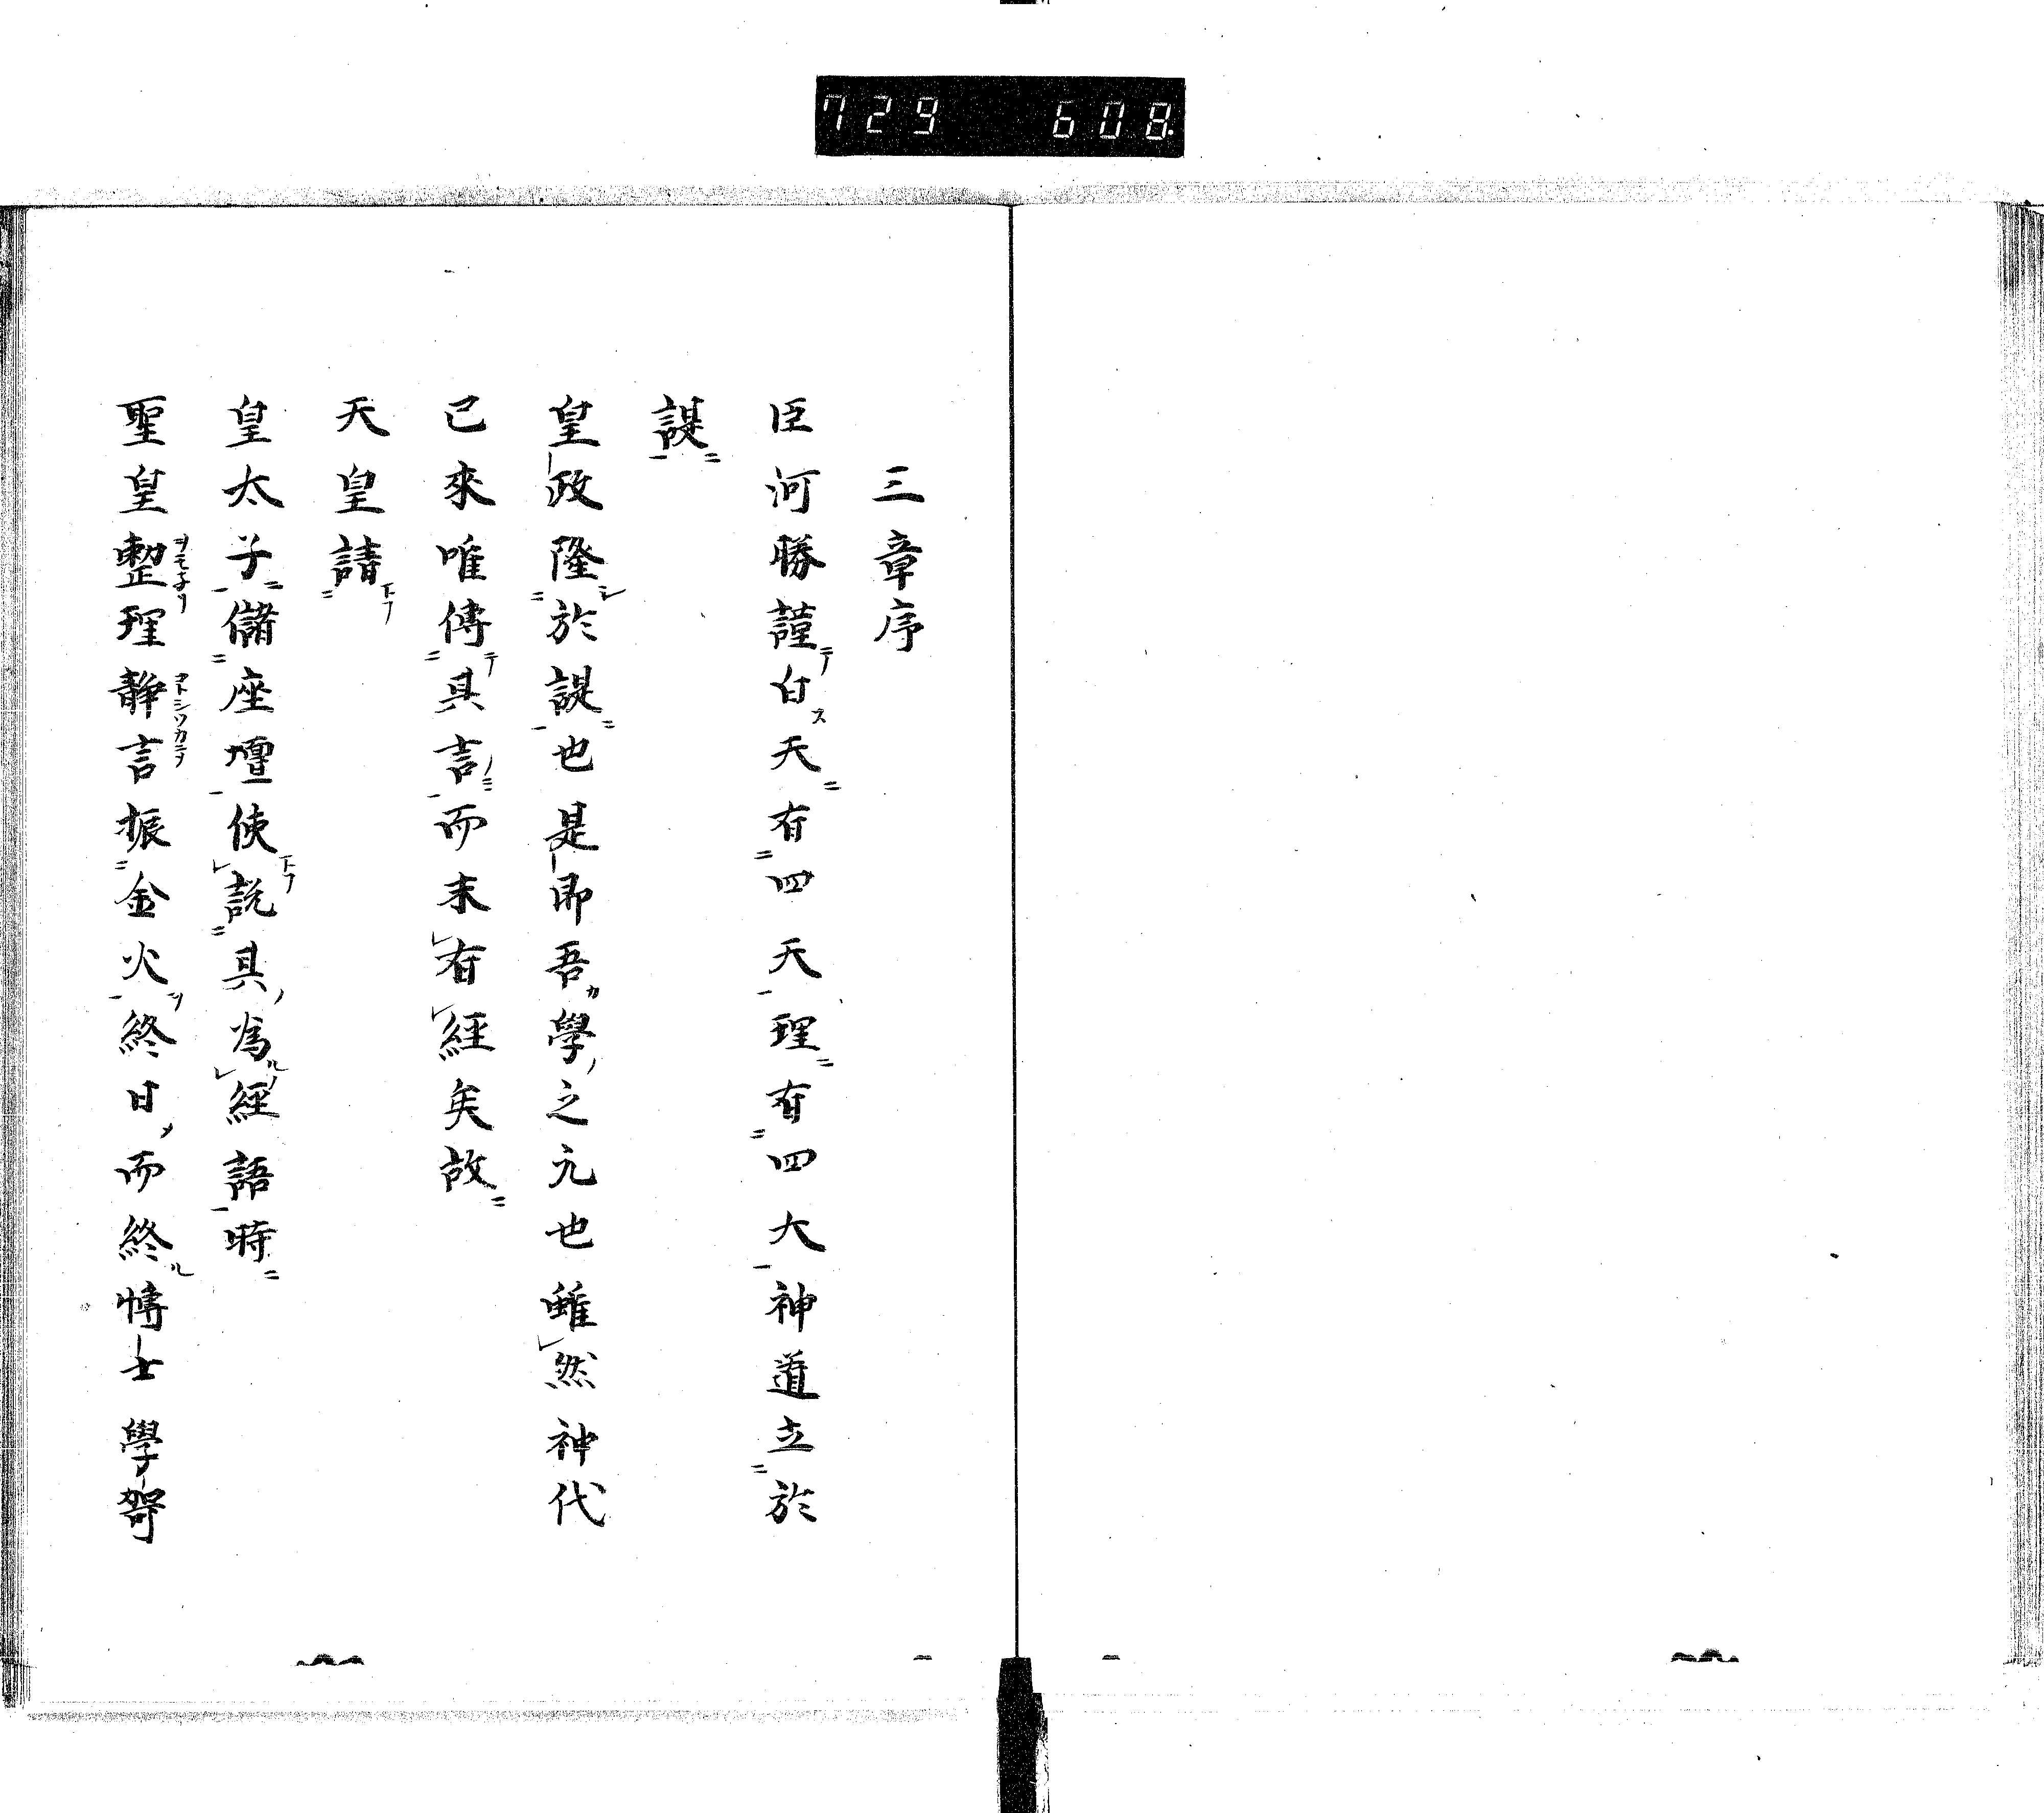 729 608
三章序
臣河勝謹白天有四天理有四大神道立於
諟
皇政隆於諟也是即吾學之元也雖然神代
已來唯傳其言而末有經矣故
天皇請
皇太子儲座壇使説其為經語時
聖皇整理静言振金火終日而終博士學哿